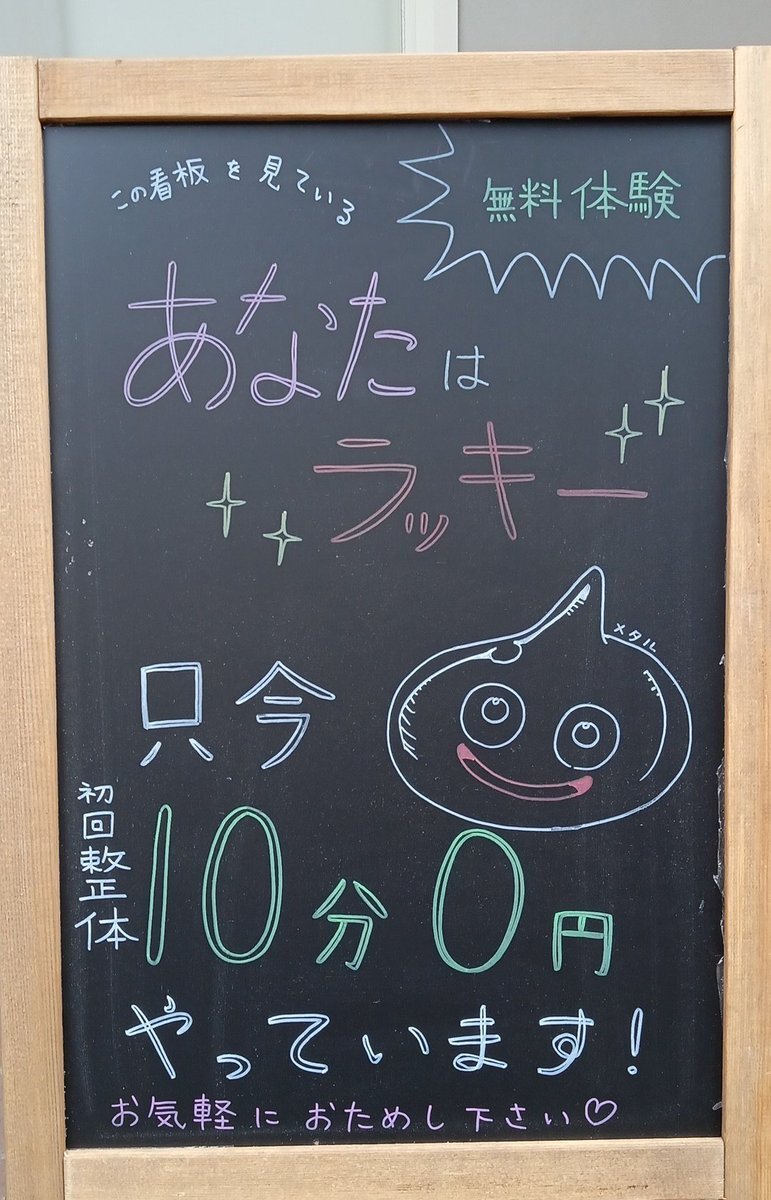 この看板を見ている
無料体験
あなたは
ラッキー
メタル
只今
初回整体
10分0円
やっています!
お気軽におためし下さい♡